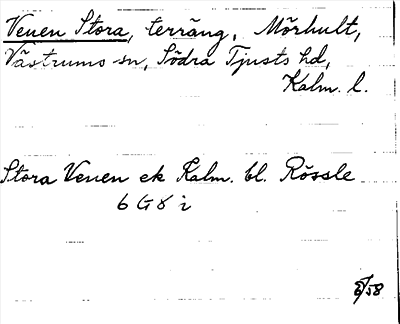 Venen Stora, terräng, Mörhult,
Västrums sn, Södra Tjusts hd,
Kalm. l.
Stora Venen ek Kalm. bl. Rössle
6 G 8 i
58